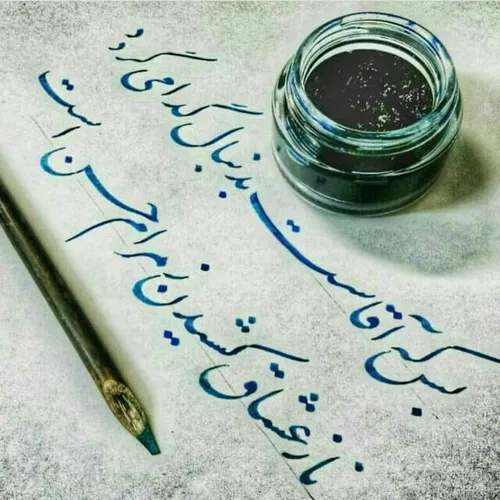 بس که آقاست بدنبال گدا می گردد
ناز عشاق کشیدن ز مرام حسن است